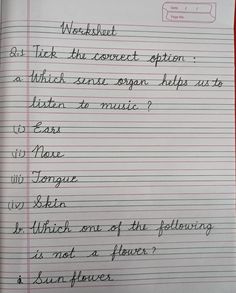 Date / /
Page No.
Worksheet
Q.1 Tick the correct option :
a. Which sense organ helps us to
listen to music ?
(i) Ears
(ii) Nose
(iii) Tongue
(iv) Skin
b. Which one of the following
is not a flower ?
i. Sunflower